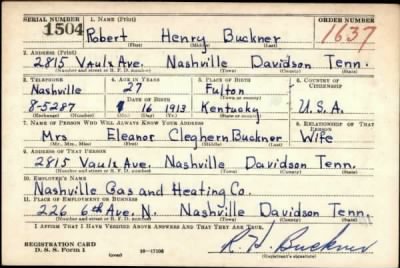 SERIAL NUMBER 1. NAME (Print) ORDER NUMBER
1504 Robert Henry Buckner 1637
(First) (Middle) (Last)
2. ADDRESS (Print)
2815 Vaulx Ave. Nashville Davidson Tenn.
(Number and street or R. F. D. number) (Town) (County) (State)
3. TELEPHONE 4. AGE IN YEARS 5. PLACE OF BIRTH 6. COUNTRY OF CITIZENSHIP
Nashville 27 Fulton
DATE OF BIRTH (Town or county)
8-5287 16 1913 Kentucky U.S.A.
(Exchange) (Number) (Mo.) (Day) (Yr.) (State or country)
7. NAME OF PERSON WHO WILL ALWAYS KNOW YOUR ADDRESS 8. RELATIONSHIP OF THAT PERSON
Mrs Eleanor Cleghern Buckner Wife
(Mr., Mrs., Miss) (First) (Middle) (Last)
9. ADDRESS OF THAT PERSON
2815 Vaulx Ave. Nashville Davidson Tenn.
(Number and street or R. F. D. number) (Town) (County) (State)
10. EMPLOYER'S NAME
Nashville Gas and Heating Co.
11. PLACE OF EMPLOYMENT OR BUSINESS
226 6th Ave. N. Nashville Davidson Tenn.
(Number and street or R. F. D. number) (Town) (County) (State)
I AFFIRM THAT I HAVE VERIFIED ABOVE ANSWERS AND THAT THEY ARE TRUE.
REGISTRATION CARD R. H. Buckner
D. S. S. Form 1 16-17105 (Registrant's signature)